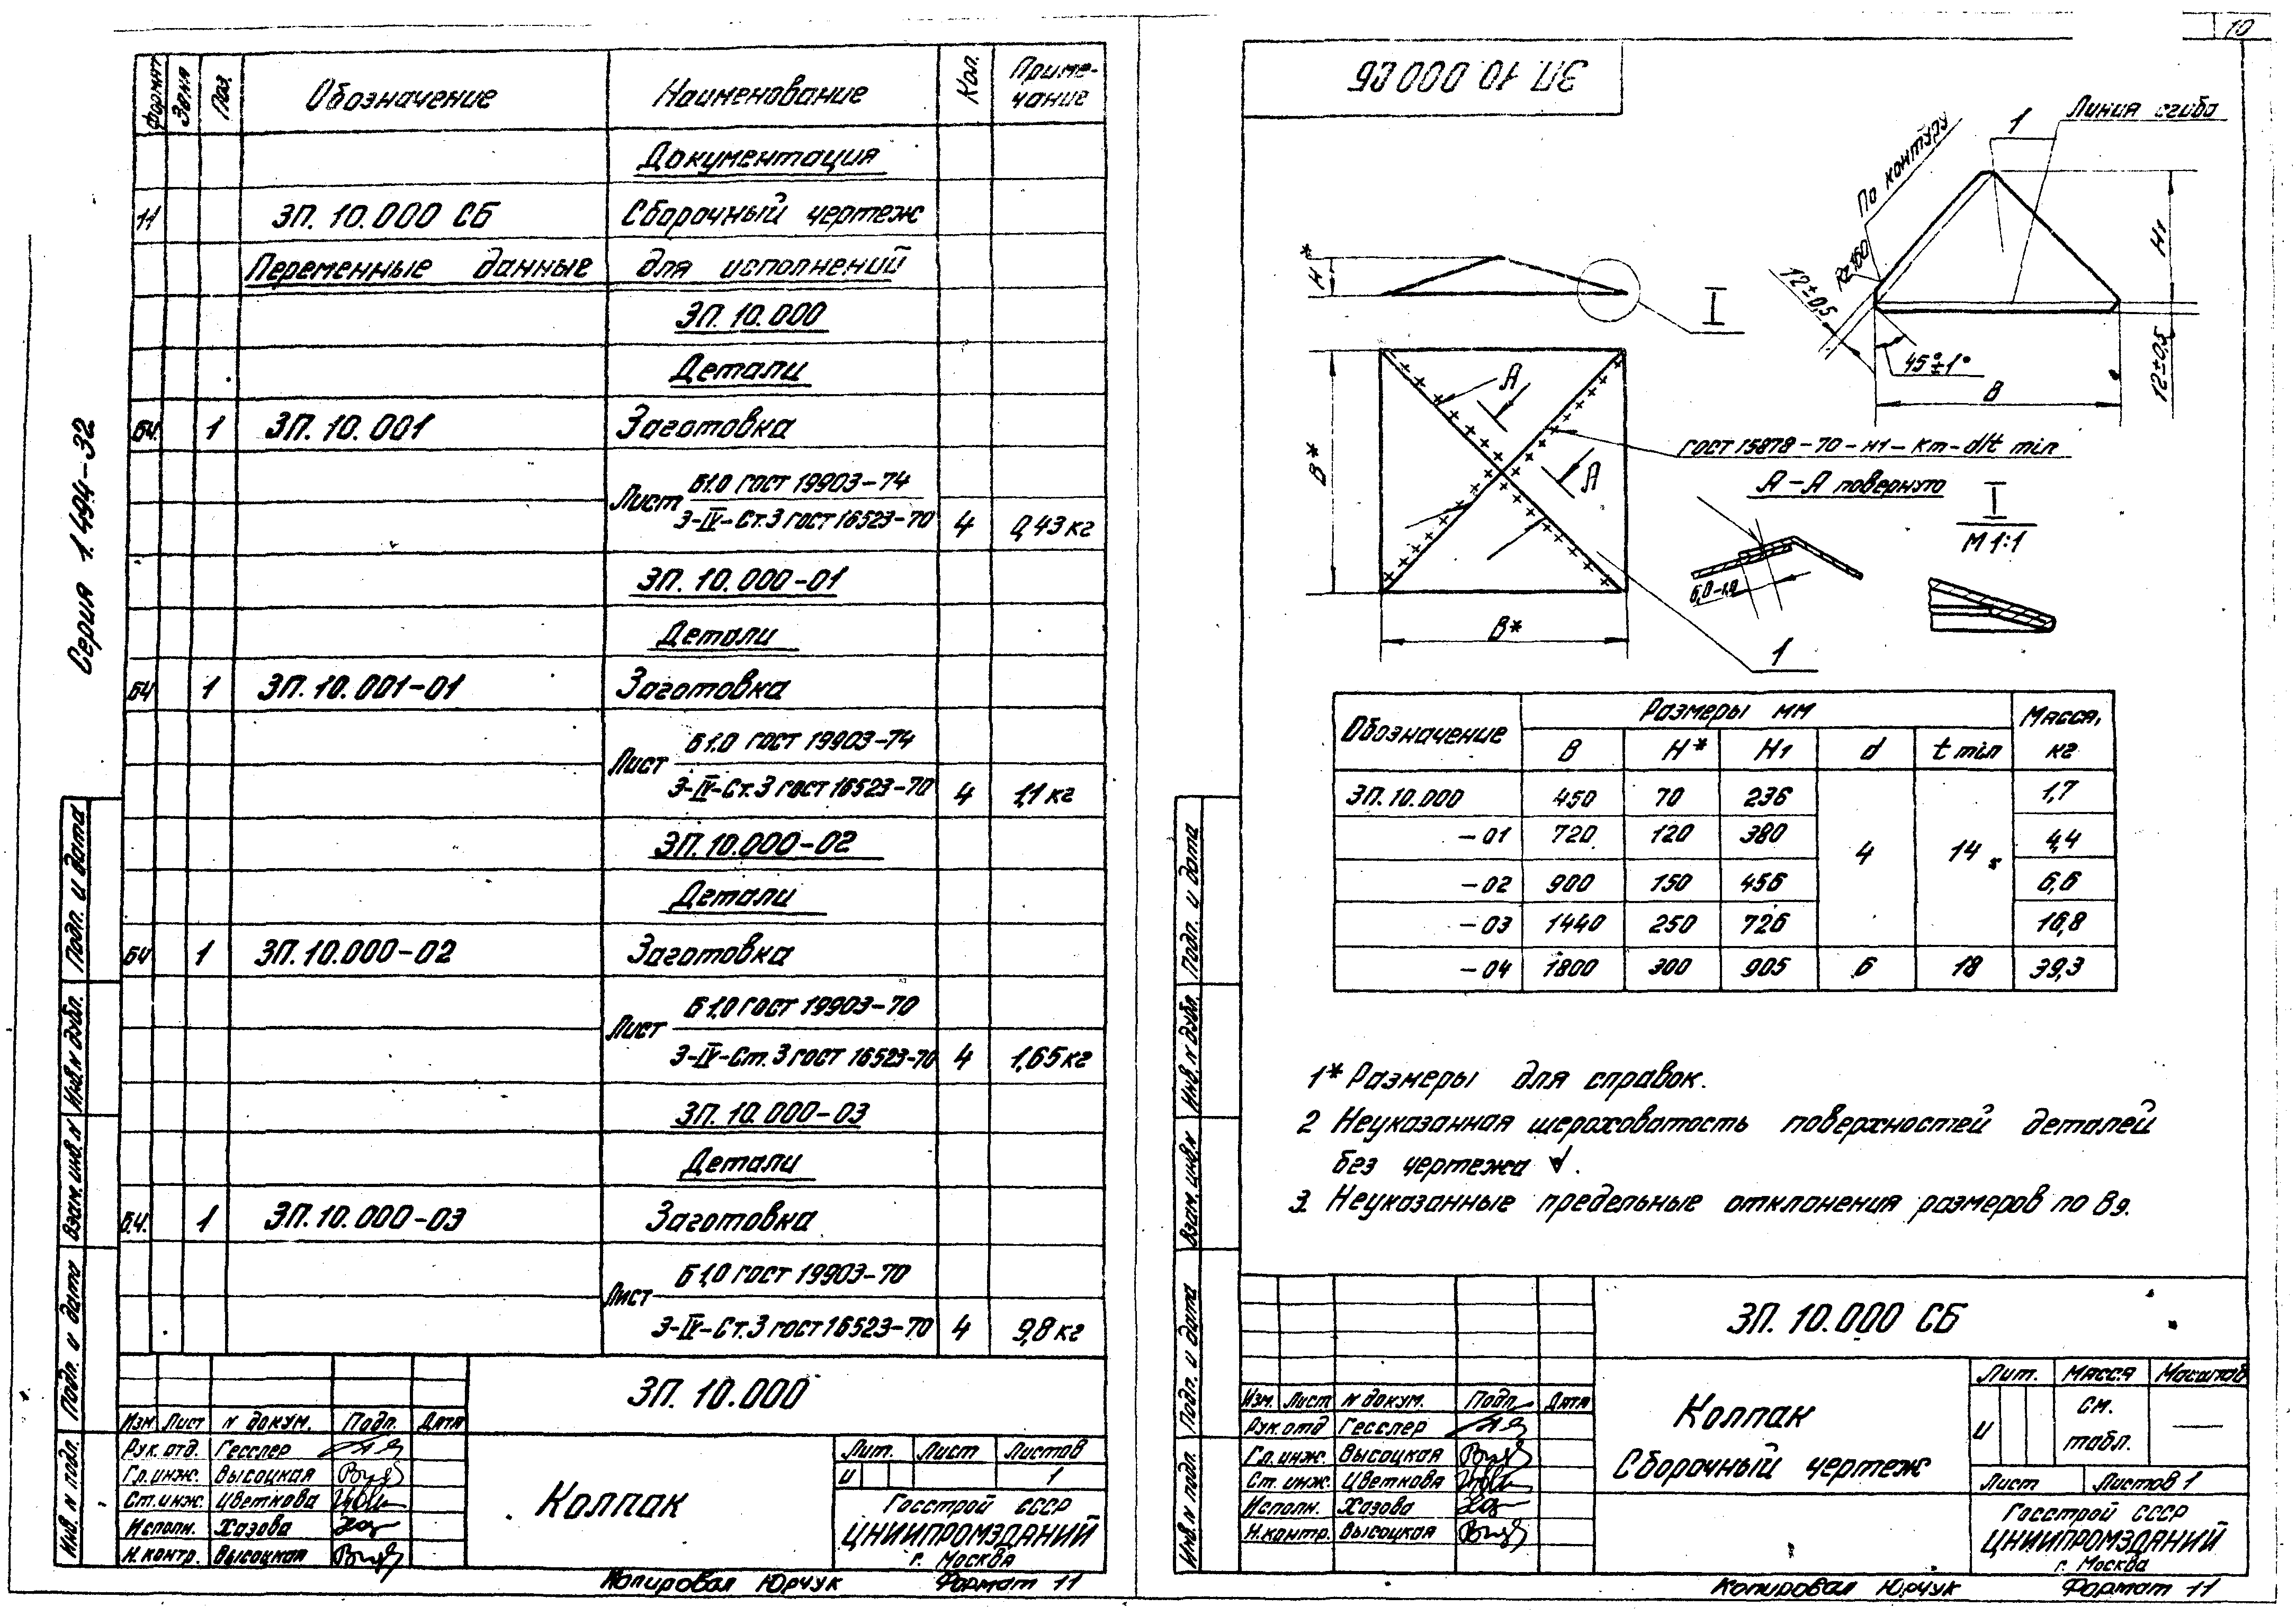 Серия 1.494-32
Формат Зона Поз. Обозначение Наименование Кол. Приме-
чание
Документация
11 ЗП. 10.000 СБ Сборочный чертеж
Переменные данные для исполнений
ЗП. 10.000
Детали
БЧ. 1 ЗП. 10. 001 Заготовка
Лист Б1.0 ГОСТ 19903-74
3-IV-Ст.3 ГОСТ 16523-70 4 0,43 кг
ЗП. 10.000-01
Детали
БЧ 1 ЗП. 10. 001-01 Заготовка
Лист Б1.0 ГОСТ 19903-74
3-IV-Ст.3 ГОСТ 16523-70 4 1,1 кг
ЗП.10.000-02
Детали
БЧ 1 ЗП.10.000-02 Заготовка
Лист Б1,0 ГОСТ 19903-70
3-IV-Ст.3 ГОСТ 16523-70 4 1,65 кг
ЗП. 10.000-03
Детали
Б.Ч. 1 ЗП.10.000-03 Заготовка
Лист Б1,0 ГОСТ 19903-70
3-IV-Ст.3 ГОСТ 16523-70 4 9,8 кг
Подп. и дата
Инв. N дубл.
Взам. инв. N
Подп. и дата
Инв. N подл.
ЗП. 10.000
Изм Лист N докум. Подп. Дата
Рук. отд. Гесслер
Гл. инж. Высоцкая
Ст. инж. Цветкова
Исполн. Хазова
Н.контр. Высоцкая
Колпак
Лит. Лист Листов
И 1
Госстрой СССР
ЦНИИПРОМЗДАНИЙ
г. Москва
Копировал Юрчук Формат 11
10
ЗП 10.000 СБ
Линия сгиба
1
По контуру
Rz160
12±0,5
45°±1°
B
H1
12±0,5
H*
I
A
A
B*
B*
1
ГОСТ 15878-70-Н1-Кт-d/t min
А-А повернуто
I
М 1:1
6,0-1,0
Обозначение Размеры мм Масса,
кг
B H* H1 d t min
ЗП.10.000 450 70 236 4 14 1,7
-01 720 120 380 4,4
-02 900 150 456 6,6
-03 1440 250 726 16,8
-04 1800 300 905 6 18 39,3
1* Размеры для справок.
2 Неуказанная шероховатость поверхностей деталей
без чертежа √.
3. Неуказанные предельные отклонения размеров по В9.
Подп. и дата
Инв. N дубл.
Взам. инв. N
Подп. и дата
Инв. N подл.
ЗП. 10.000 СБ
Изм. Лист N докум. Подп. Дата
Рук. отд Гесслер
Гл. инж. Высоцкая
Ст. инж. Цветкова
Исполн. Хазова
Н.контр. Высоцкая
Колпак
Сборочный чертеж
Лит. Масса Масштаб
И см.
табл. —
Лист Листов 1
Госстрой СССР
ЦНИИПРОМЗДАНИЙ
г. Москва
Копировал Юрчук Формат 11